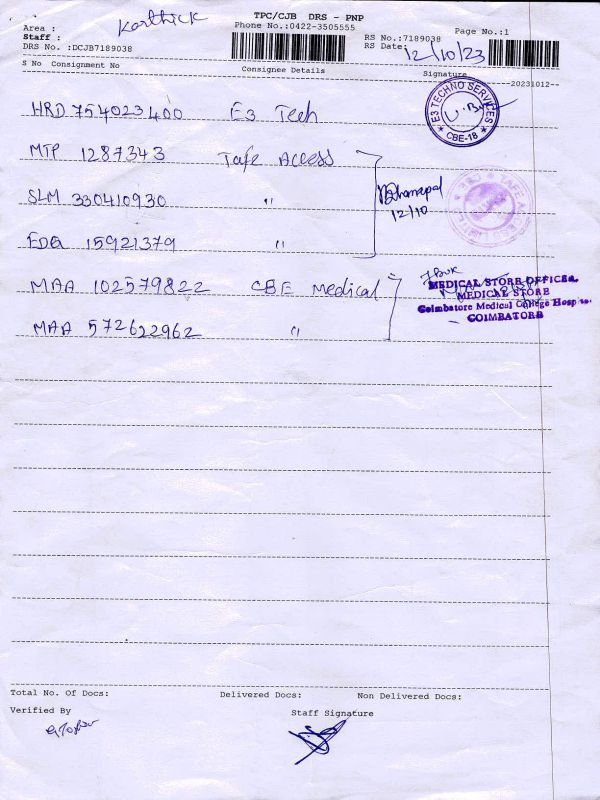 TPC/CJB DRS - PNP
Area :
Karthick
Phone No.:0422-3505555
Page No.:1
Staff :
RS No.:7189038
DRS No. :DCJB7189038
RS Date:
12/10/23
S No Consignment No
Consignee Details
Signature
--20231012--
HRD 754023400 E3 Tech
E3 TECHNO SERVICES
CBE-18
MTP 1287343 Tafe Access
SLM 330410930 "
Dhanapal
12/10
EDQ 15921379 "
MAA 102579822 CBE Medical
MEDICAL STORE OFFICER,
MEDICAL STORE
Coimbatore Medical College Hospital
COIMBATORE
MAA 572622962 "
Total No. Of Docs:
Delivered Docs:
Non Delivered Docs:
Verified By
Staff Signature